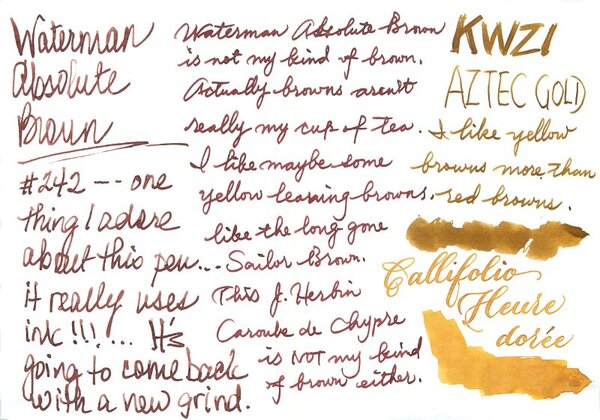 Waterman
Absolute
Brown
#242 -- one
thing I adore
about this pen...
it really uses
ink!!!.... It's
going to come back
with a new grind.
Waterman Absolute Brown
is not my kind of brown.
Actually browns aren't
really my cup of tea.
I like maybe some
yellow leaning browns.
like the long gone
Sailor Brown.
This J. Herbin
Caroube de Chypre
is NOT my kind
of brown either.
KWZI
AZTEC GOLD
I like yellow
browns more than
red browns.
Callifolio
Heure
dorée